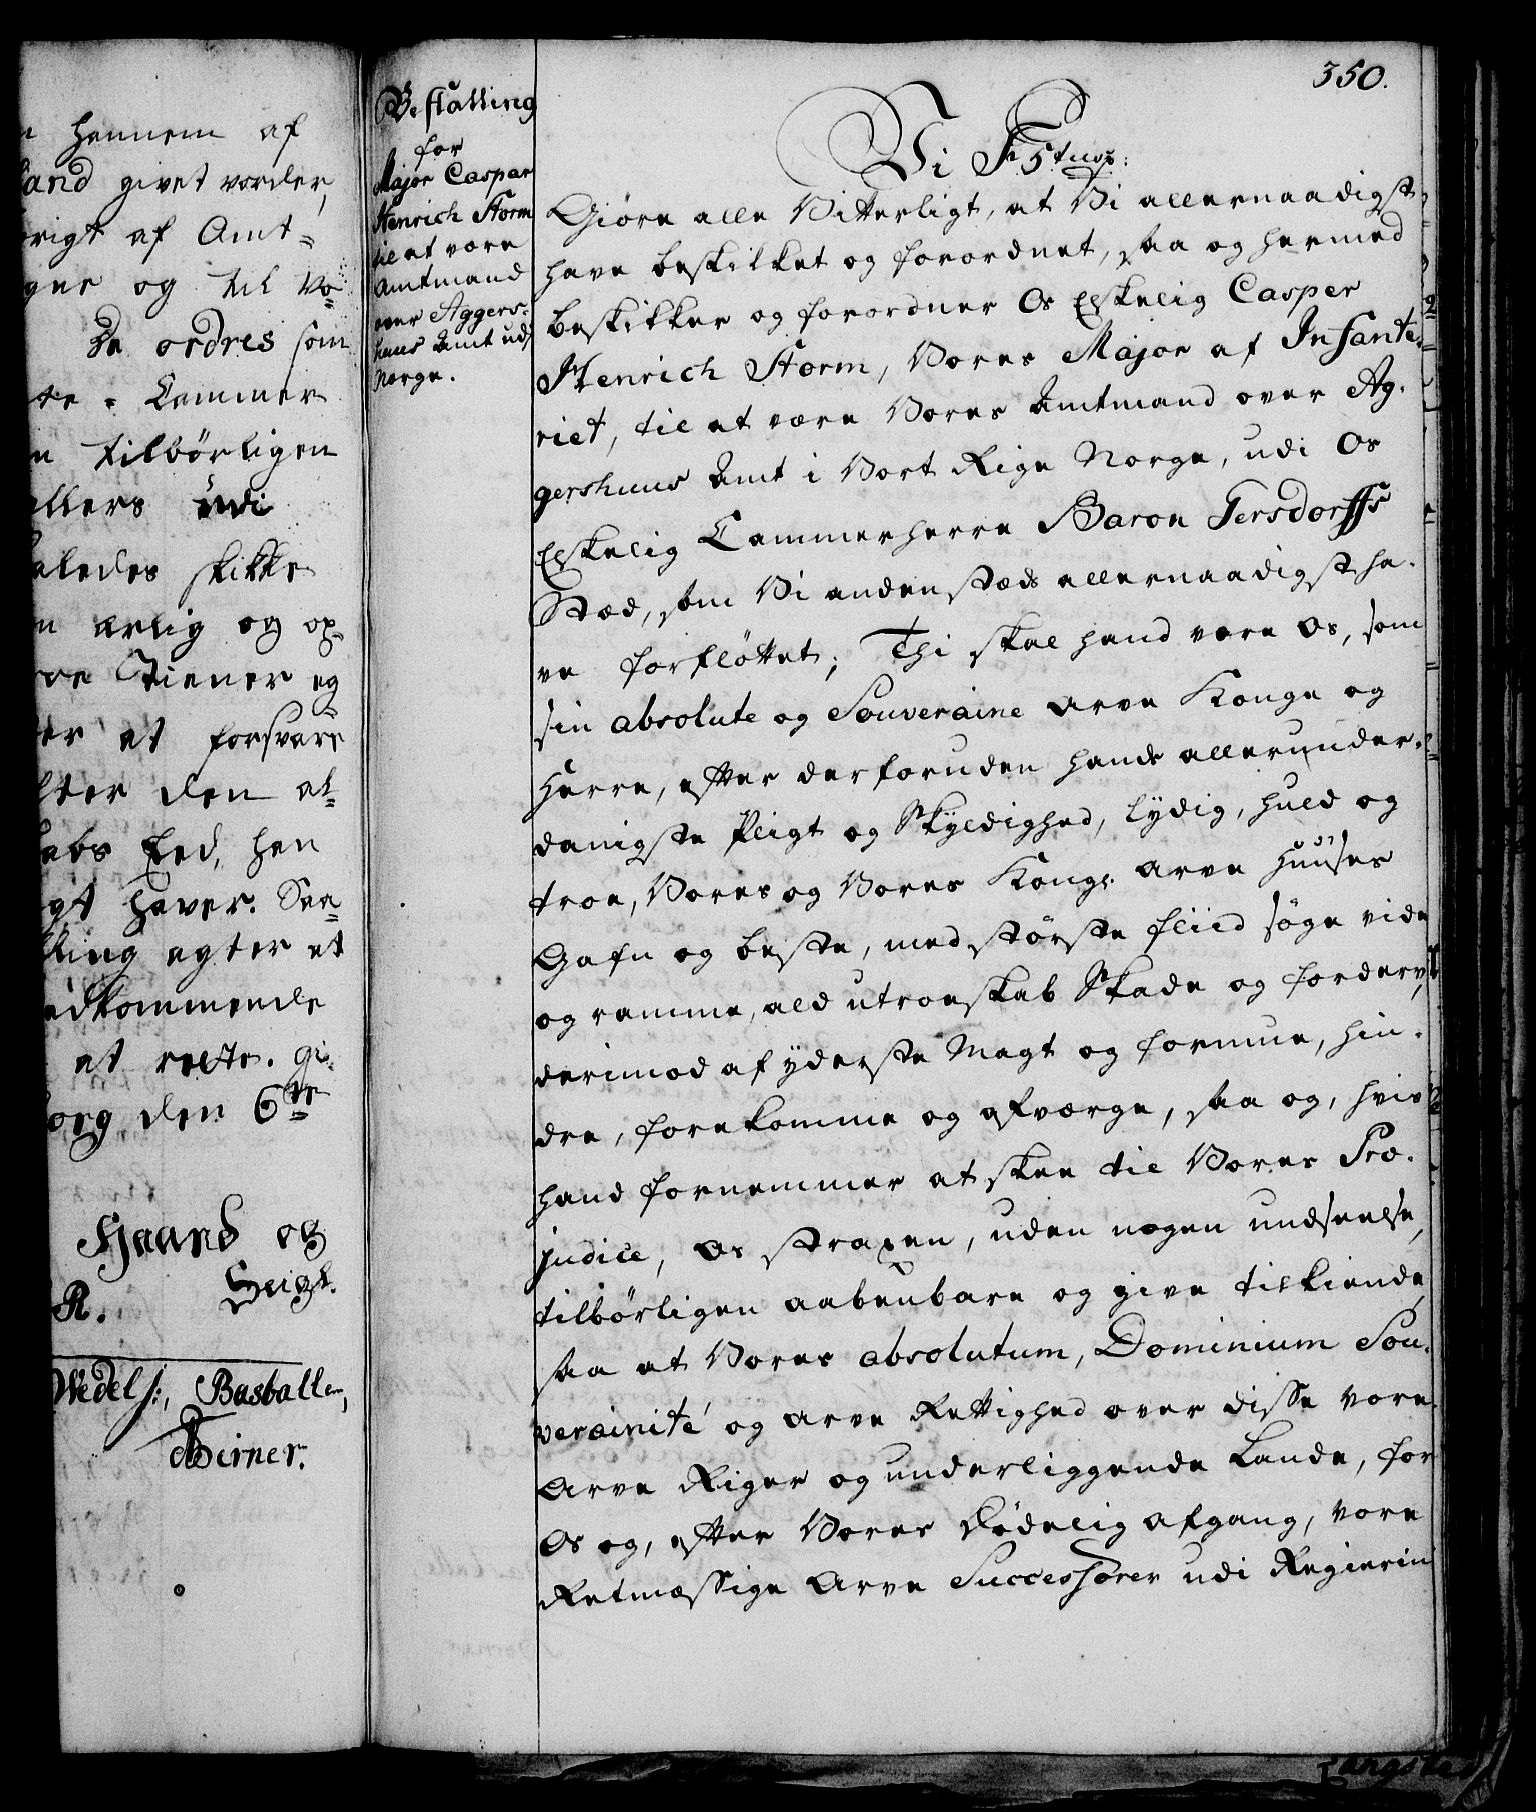 hennem af
and givet vorder,
origt af Amt=
gne og til Vo=
De ordres som
te = Cammer
tilbørligen
ellers udi
aledes skikke
n ærlig og op=
roe Tiener eg
er at forsvare
efter den af=
abs Eed, han
gt haver. Saa=
lling agter at
edkommende
at rette. Gi=
org den 6te
Haand og
R. Seigl.
Wedel s:, Basballe,
Birner.
350.
Bestalling
for
Major Caspar
Henrich Storm
til at være
Amtmand
over Aggers=
huus Amt udj
Norge.
Vi F 5tus:
Giøre alle Vitterligt, at Vi allernaadigst
have beskikket og forordnet, saa og hermed
beskikker og forordner Os Elskelig Casper
Henrich Storm, Vores Major af Infante=
riet, til at være Vores Amtmand over Ag=
gershuus Amt i Vort Rige Norge, udi Os
Elskelig Cammerherre Baron Gersdorffs
Stæd, som Vi andenstæds allernaadigst ha=
ve forfløttet; Thi skal hand være Os, som
sin absolute og Souveraine Arve Konge og
Herre, efter derforuden hands allerunder=
danigste Pligt og Skyldighed, lydig, huld og
troe, Vores og Vores Kongl. Arve Huuses
Gafn og beste, med største fliid søge vide
og ramme, ald utroeskab Skade og forderv,
derimod af yderste Magt og formue, hin=
dre, forekomme og afværge, saa og, hvis
hand fornemmer at skee til Vores Præ=
judice, Os straxen, uden nogen undseelse,
tilbørligen aabenbare og give tilkiende,
saa at Vores absolutum, Dominium Sou=
verainité og Arve Rettighed over disse Vore
Arve Riger og underliggende Lande, for
Os og, efter Vores dødelig afgang, Vore
Retmæssige Arve Successorer udi Regierin